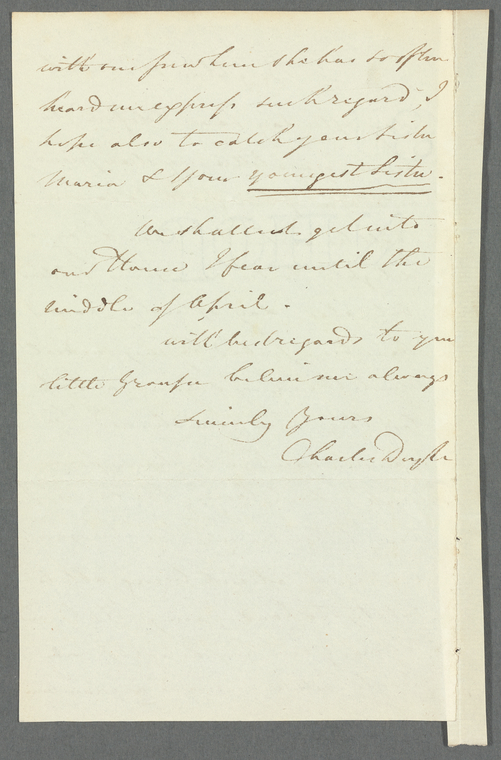 with one for whom she has so often
heard me express such regard, I
hope also to catch your Sister
Maria & your youngest Sister.
We shall not get into
our House I fear until the
middle of April.
with best regards to you
little believe me always
Sincerely Yours
Charles